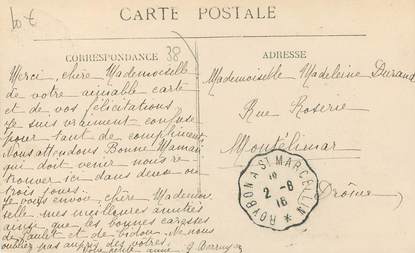 10 €
CARTE POSTALE
38
CORRESPONDANCE
Merci, chère Mademoiselle
de votre aimable carte
et de vos félicitations.
Je suis vraiment confuse
pour tant de compliments.
Nous attendons Bonne Maman
qui doit venir nous re-
trouver ici dans deux ou
trois jours.
Je vous envoie, chère Mademoi-
selle mes meilleures amitiés
ainsi que les bonnes caresses
de Paulet et de Bidou. Ne nous
oubliez pas auprès des vôtres.
Votre petite amie
ADRESSE
Mademoiselle Madeleine Durand
Rue Roserie
Montélimar
Drôme
ROYBON A ST MARCELLIN
2-8
16